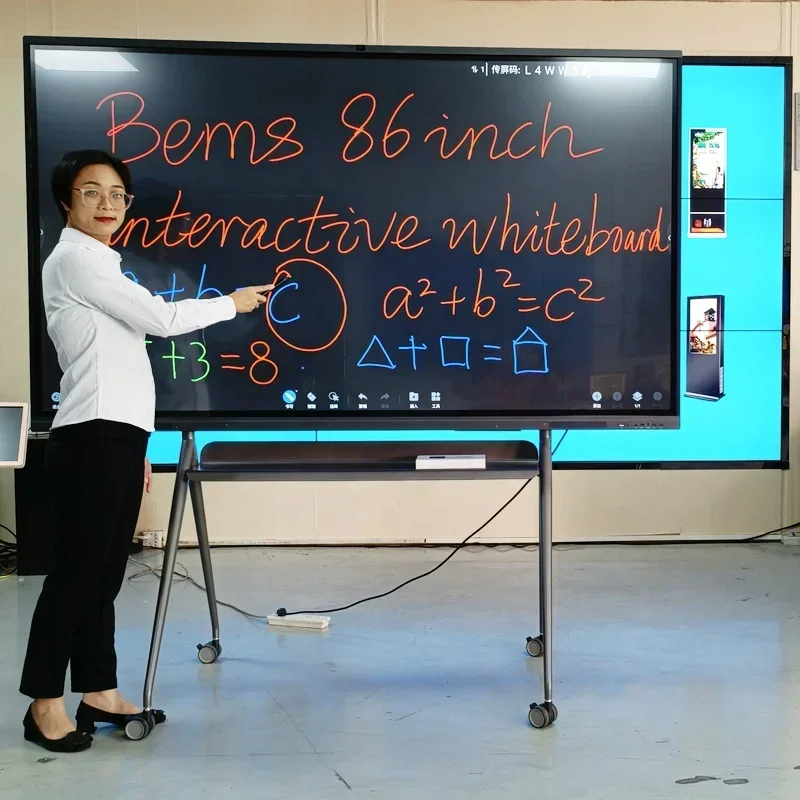 传屏码: L4WW
Bems 86 inch
interactive whiteboard
a + b = c a² + b² = c²
+3=8 △+□=
1/1